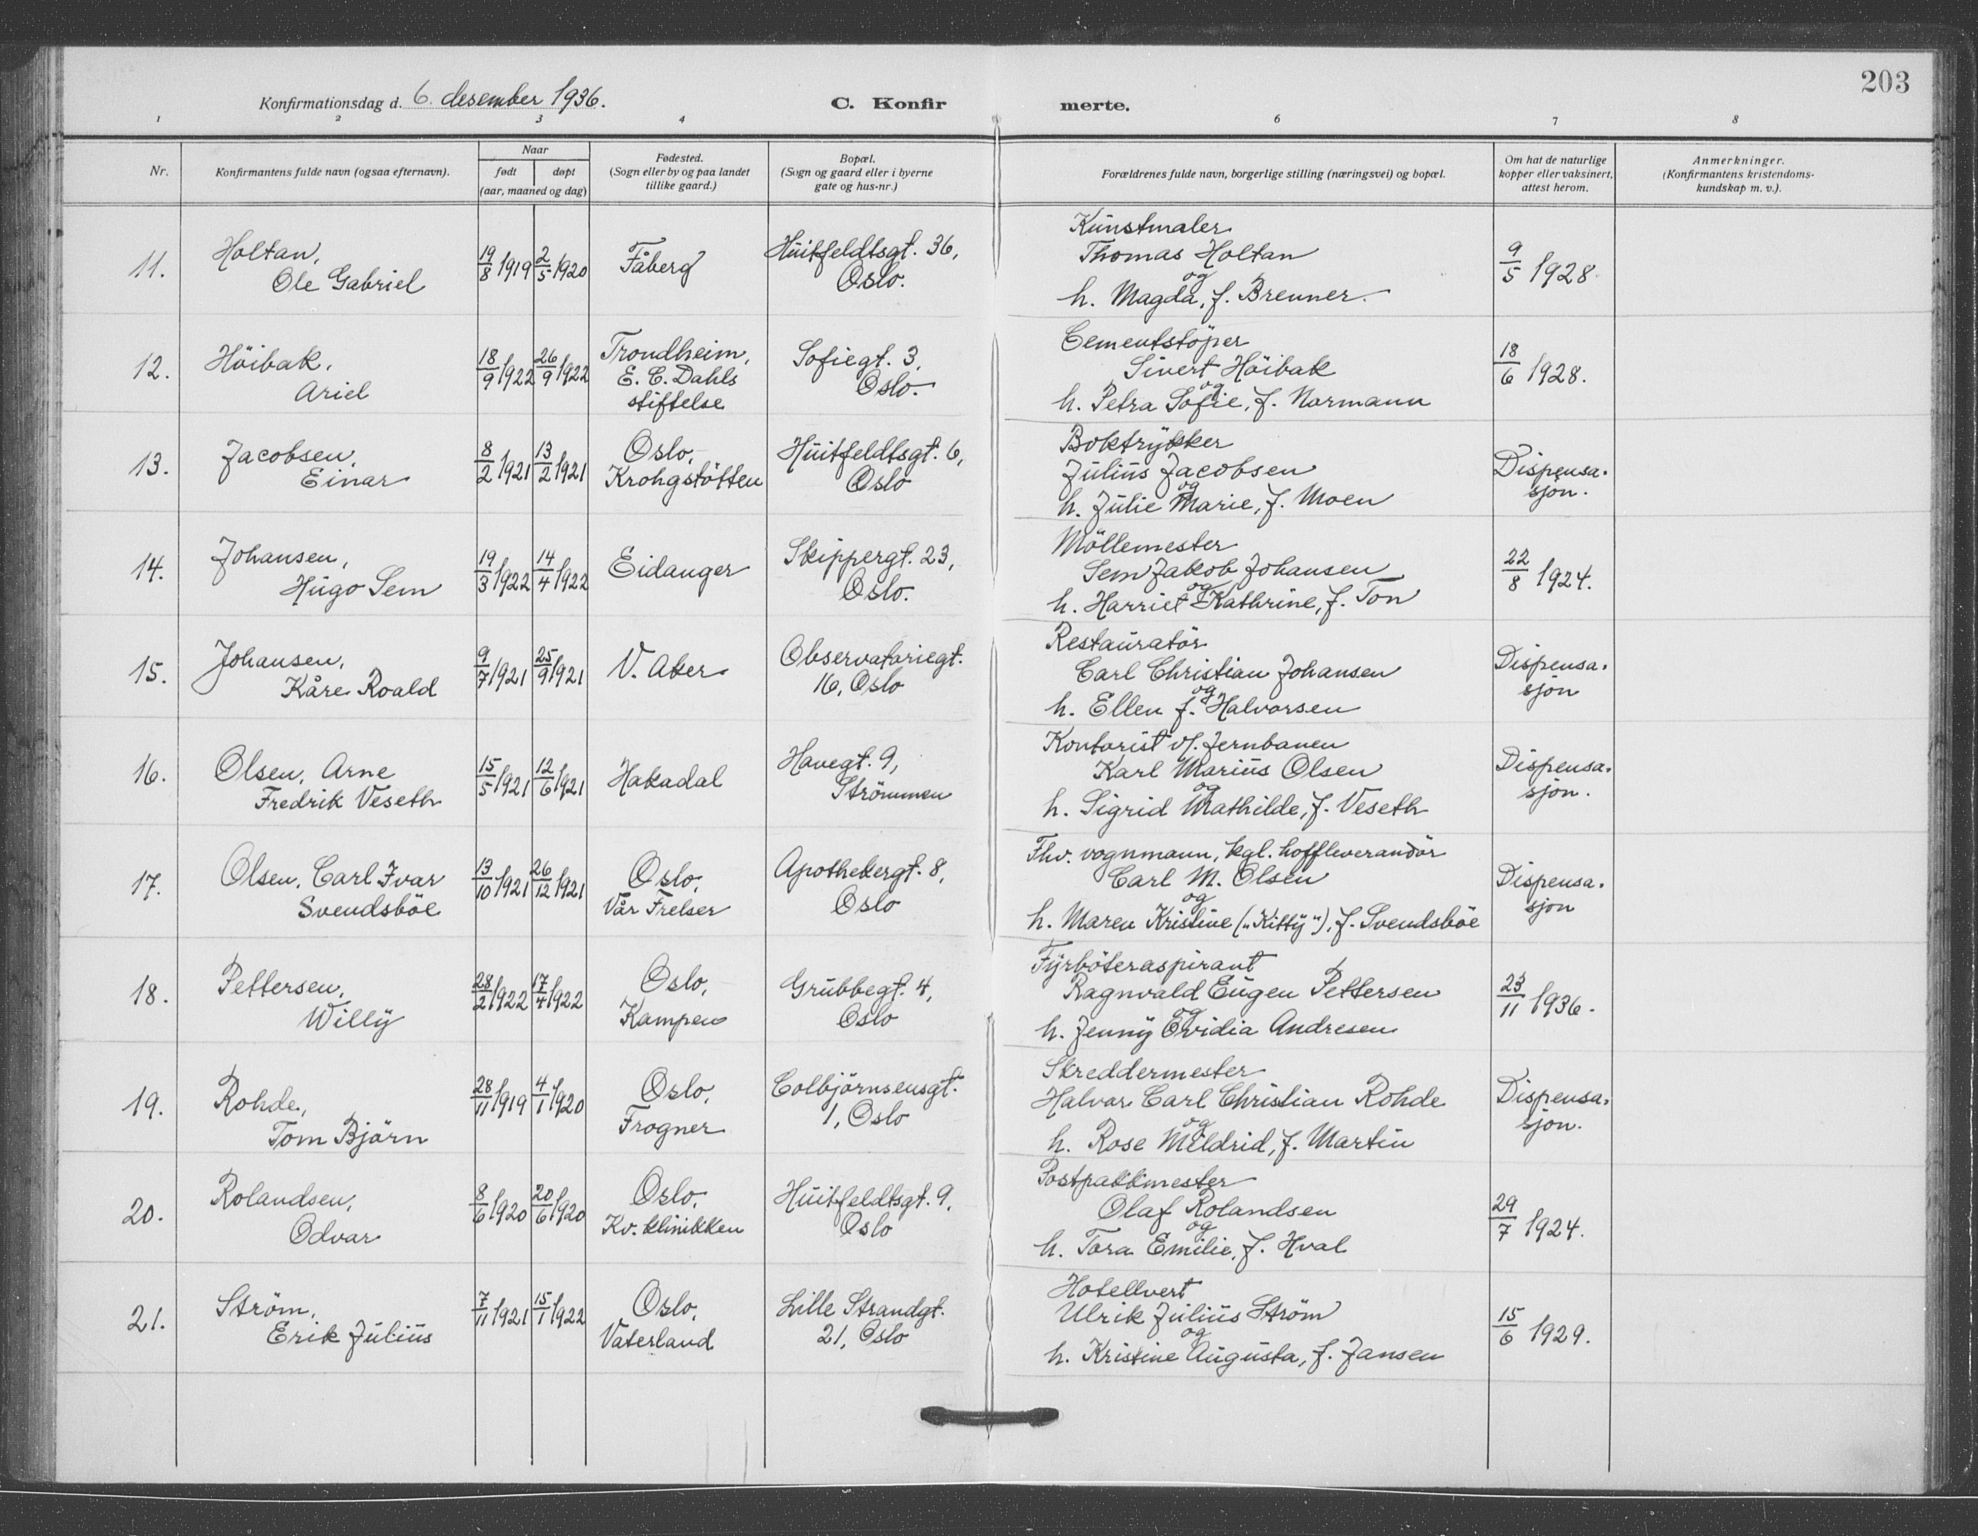 203
Konfirmationsdag d. 6. desember 1936.
C. Konfir
merte.
1 2 3 4 6 7 8
Nr.
Konfirmantens fulde navn (ogsaa efternavn).
Naar
født døpt
(aar, maaned og dag)
Fødested.
(Sogn eller by og paa landet
tillike gaard.)
Bopæl.
(Sogn og gaard eller i byerne
gate og hus-nr.)
Forældrenes fulde navn, borgerlige stilling (næringsvei) og bopæl.
Om hat de naturlige
kopper eller vaksinert,
attest herom.
Anmerkninger.
(Konfirmantens kristendoms-
kundskap m. v.).
11. Holtan,
Ole Gabriel
19/8 1919 2/5 1920
Fåberg
Huitfeldtsgt. 36,
Oslo.
Kunstmaler
Thomas Holtan
og
h. Magda, f. Brenner.
9/5 1928.
12. Höibak,
Ariel
18/9 1922 26/9 1922
Trondheim,
E. C. Dahls
stiftelse
Sofiegt. 3,
Oslo.
Cementstöper
Sivert Höibak
og
h. Petra Sofie, f. Normann
18/6 1928.
13. Jacobsen,
Einar
8/2 1921 13/2 1921
Oslo,
Krohgstötten
Huitfeldtsgt. 6,
Oslo
Boktrykker
Julius Jacobsen
og
h. Julie Marie, f. Moen
Dispensa-
sjon.
14. Johansen,
Hugo Sem
19/3 1922 14/4 1922
Eidanger
Skippergt. 23,
Oslo.
Möllemester
Sem Jakob Johansen
og
h. Harriet Kathrine, f. Ton
22/8 1924.
15. Johansen,
Kåre Roald
9/7 1921 25/9 1921
V. Aker
Observatoriegt.
16, Oslo
Restauratör
Carl Christian Johansen
og
h. Ellen f. Halvorsen
Dispensa-
sjon
16. Olsen, Arne
Fredrik Veseth
15/5 1921 12/6 1921
Hakadal
Havegt. 9,
Strömmen
Kontorist v/. Jernbanen
Karl Marius Olsen
og
h. Sigrid Mathilde, f. Veseth
Dispensa-
sjon.
17. Olsen, Carl Ivar
Svendsböe
13/10 1921 26/12 1921
Oslo,
Vår Frelser
Apothekergt. 8,
Oslo
Fhv. vognmann, kgl. hoffleverandör
Carl M. Olsen
og
h. Maren Kristine („Kitty"), f. Svendsböe
Dispensa-
sjon
18. Pettersen,
Willy
28/2 1922 17/4 1922
Oslo,
Kampen
Grubbegt. 4,
Oslo
Fyrböteraspirant
Ragnvald Eugen Pettersen
og
h. Jenny Ovidia Andresen
23/11 1936.
19. Rohde,
Tom Björn
28/11 1919 4/1 1920
Oslo,
Frogner
Colbjörnsensgt.
1, Oslo
Skreddermester
Halvar Carl Christian Rohde
og
h. Rose Meldrid, f. Martin
Dispensa-
sjon.
20. Rolandsen,
Odvar
8/6 1920 20/6 1920
Oslo,
Kv. klinikken
Huitfeldtsgt. 9,
Oslo
Postpakkmester
Olaf Rolandsen
og
h. Tora Emilie, f. Hval
29/7 1924.
21. Ström,
Erik Julius
7/11 1921 15/1 1922
Oslo,
Vaterland
Lille Strandgt.
21, Oslo
Hotellvert
Ulrik Julius Ström
og
h. Kristine Augusta, f. Jansen
15/6 1929.